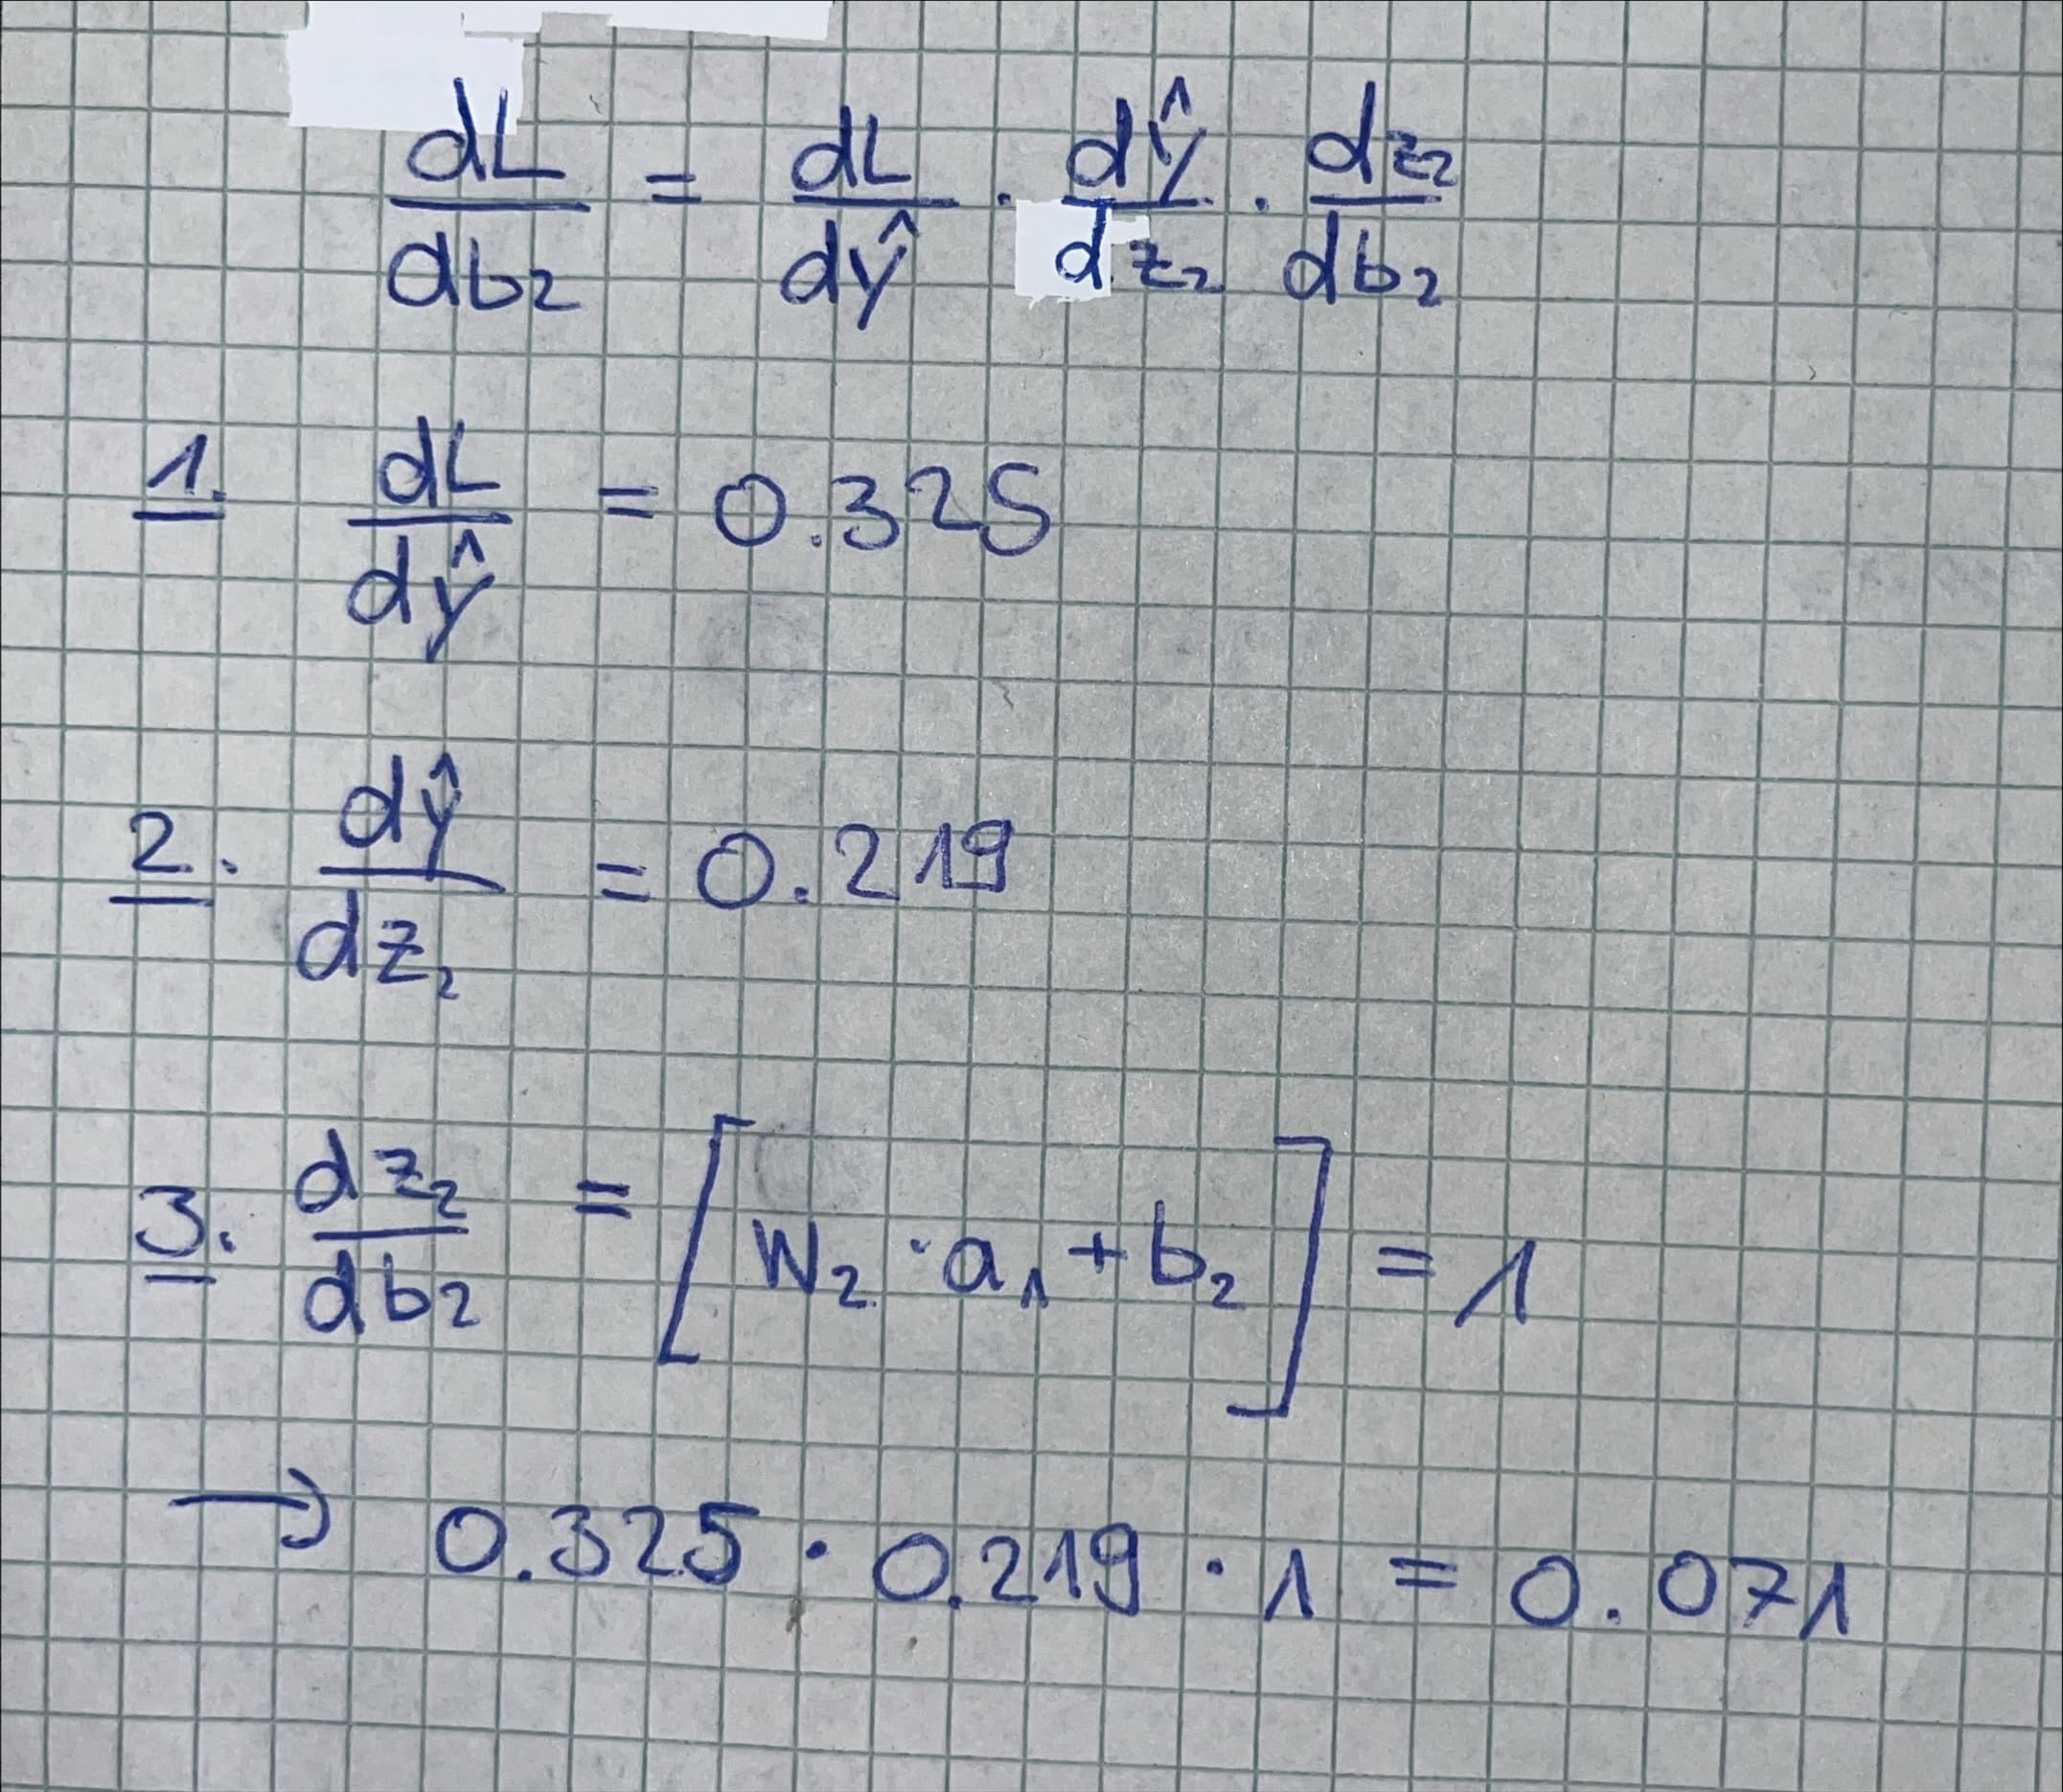 dL/db₂ = dL/dŷ · dŷ/dz₂ · dz₂/db₂
1. dL/dŷ = 0.325
2. dŷ/dz₂ = 0.219
3. dz₂/db₂ = [W₂ · a₁ + b₂] = 1
→ 0.325 · 0.219 · 1 = 0.071